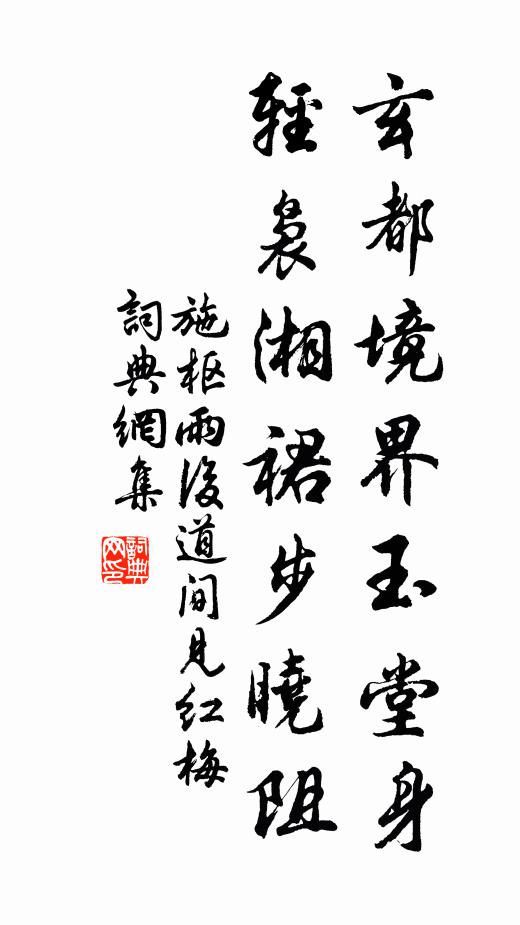 玄都境界玉堂身
輕裊湘裙步曉阻
施枢雨後道間見红梅
詞典網集
詞典網印